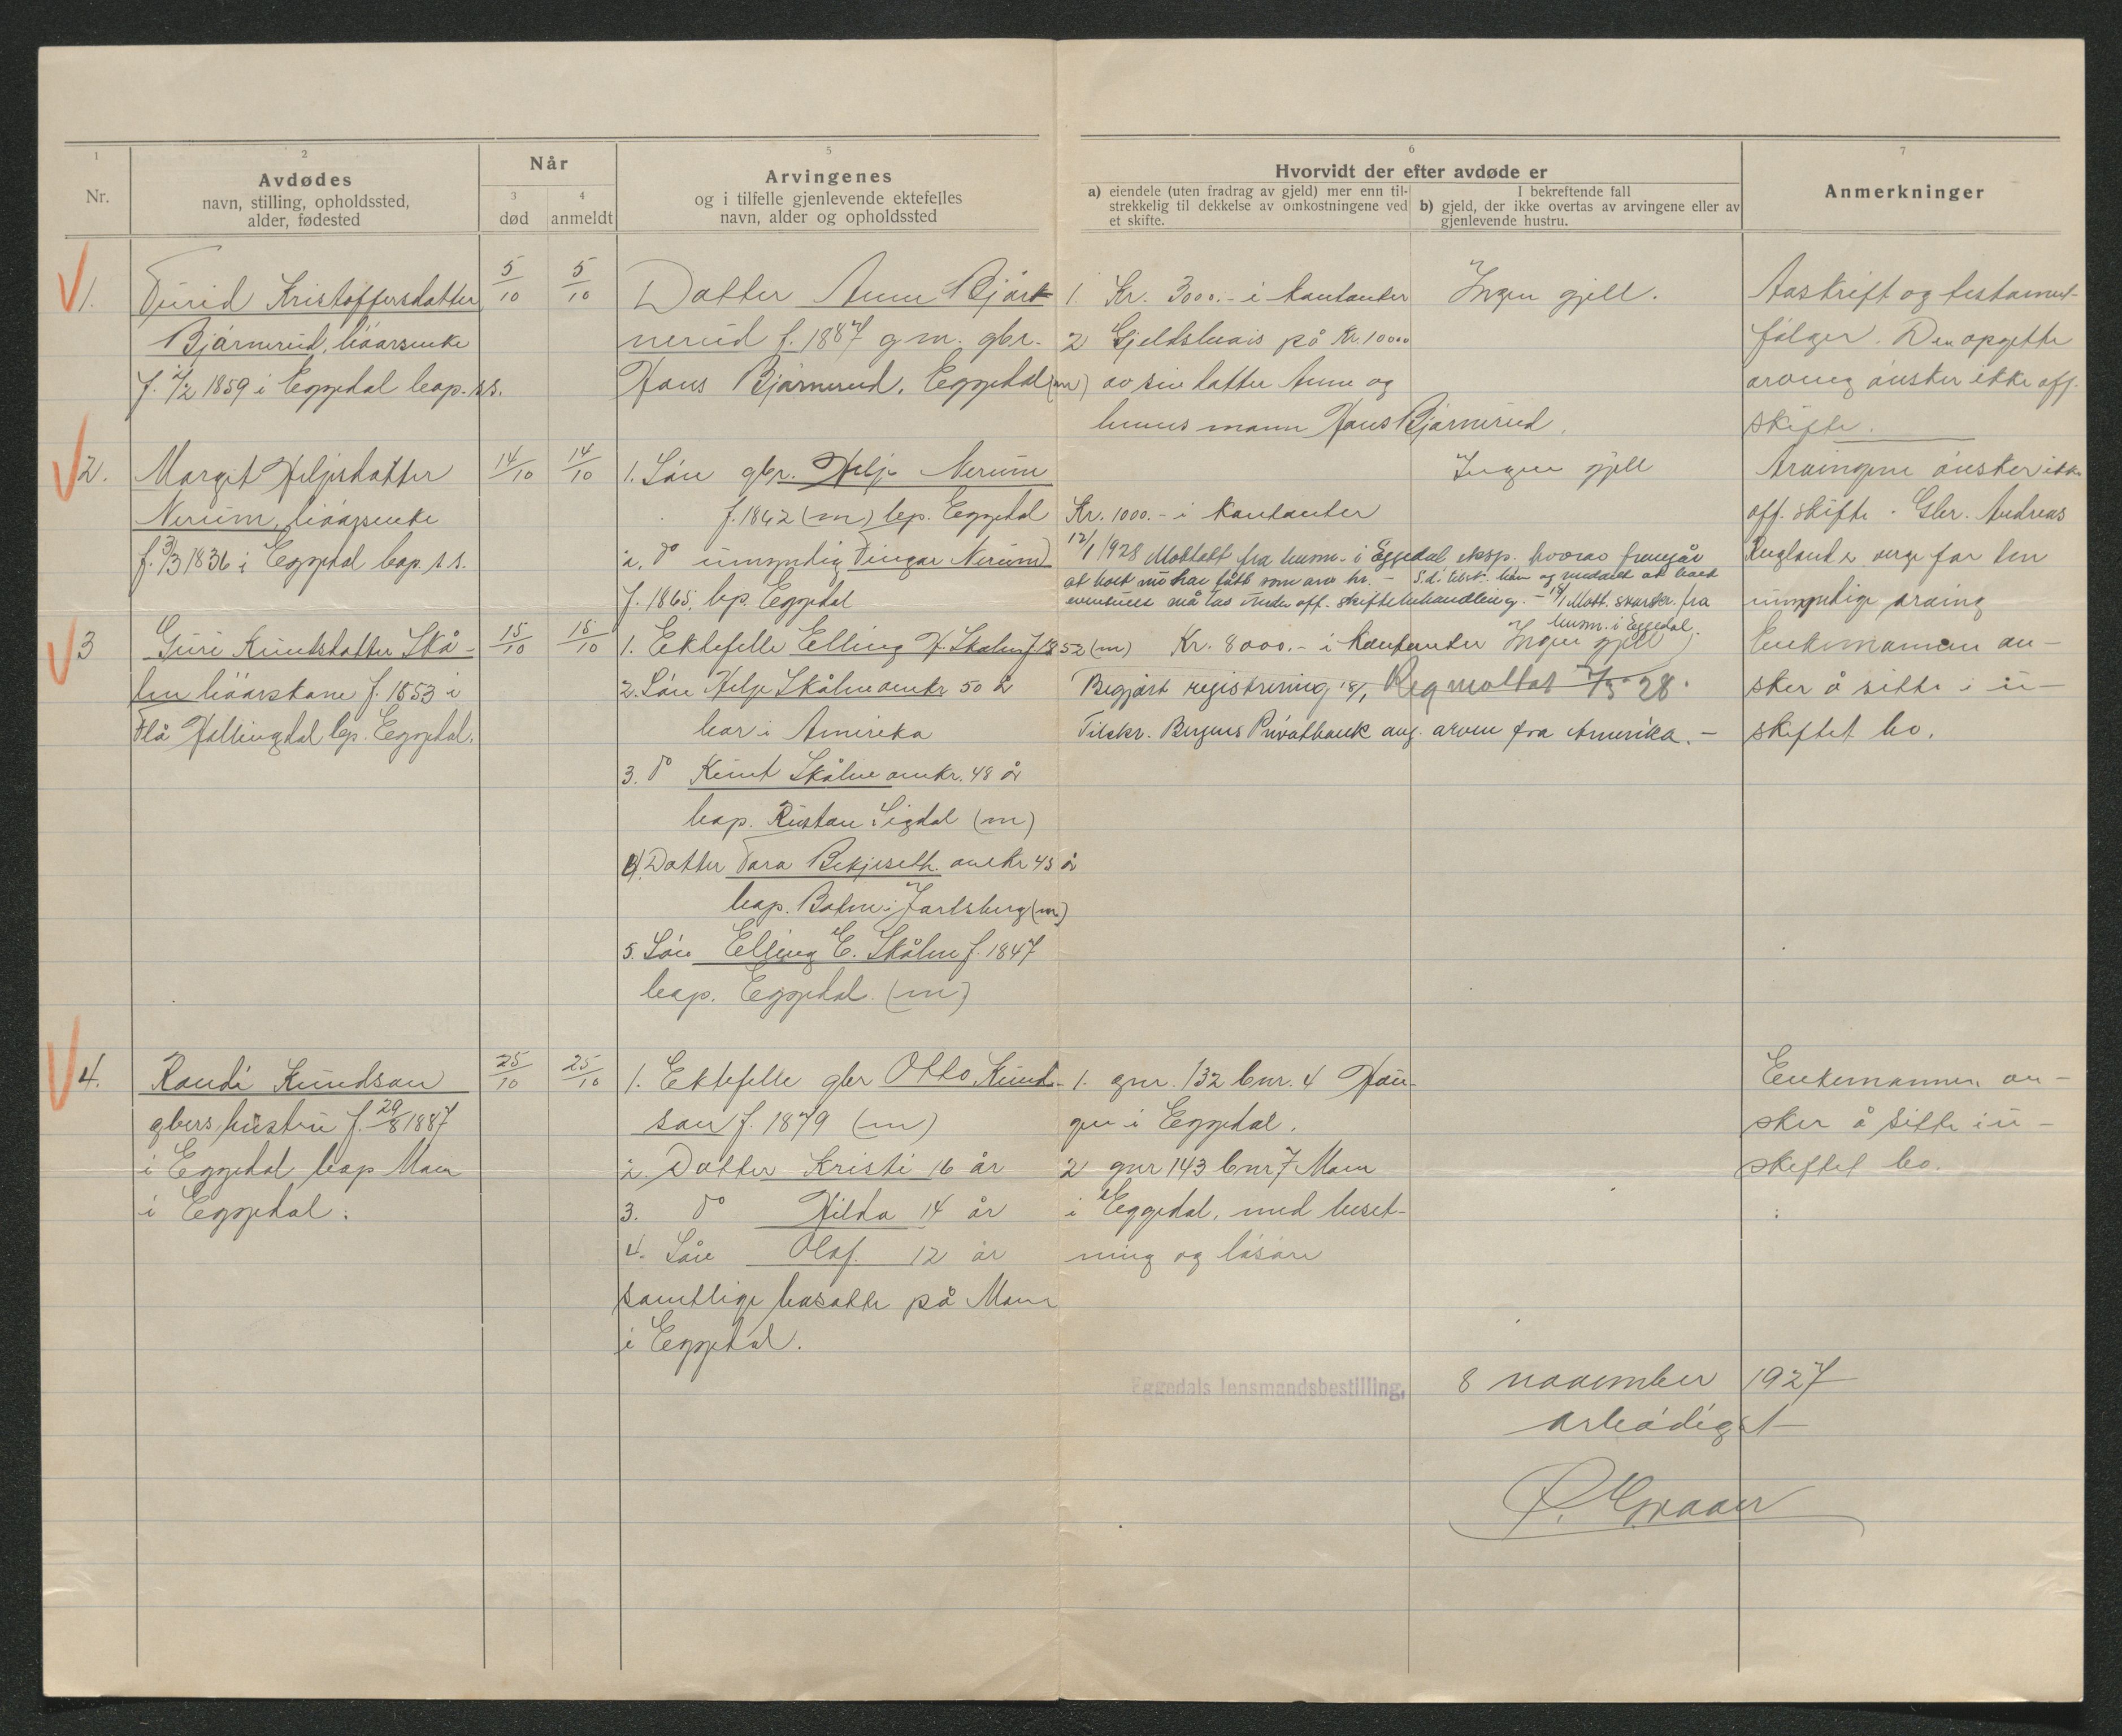 1
Nr.
2
Avdødes
navn, stilling, opholdssted,
alder, fødested
Når
3
død
4
anmeldt
5
Arvingenes
og i tilfelle gjenlevende ektefelles
navn, alder og opholdssted
6
Hvorvidt der efter avdøde er
a) eiendele (uten fradrag av gjeld) mer enn til-
strekkelig til dekkelse av omkostningene ved
et skifte.
I bekreftende fall
b) gjeld, der ikke overtas av arvingene eller av
gjenlevende hustru.
7
Anmerkninger
1.
Turid Kristoffersdatter
Bjørnerud, kårenke
1859 i Eggedal boap. s.s.
5/10
5/10
Datter Anne Bjør
nerud f. 1887 g.m. gbr.
Hans Bjørnerud, Eggedal (m)
1. Kr. 3000.- i kontanter
2 Gjeldsbevis på Kr. 10000
av sin datter Anne og
hennes mann Hans Bjørnerud.
Ingen gjell.
Avskrift og testament
følger. Den opgitte
arving ønsker ikke off.
skifte.
2.
Margit Heljesdatter
Nerum,
f. 1836 i Eggedal boap. s.s.
14/10
14/10
1. Søn gbr. Helje Nerum
f. 1862 (m) bp. Eggedal
2. do umyndig Nerum
f. 1865, bp. Eggedal
Kr. 1000.- i kontanter
Ingen gjell
12/1 1928 Mottatt fra lensm. i Eggedal eksp. hvorav fremgår
at boet nu har fått som arv kr. -
eventuelt må tas under off. skiftebehandling. - Mott. svarskr. fra
lensm. i Eggedal.
Arvingene ønsker ikke
off. skifte. Gbr. Andreas
Rugland er verge for den
umyndige arving
3
Guri Knutsdatter Skå-
len kårkone f. 1853 i
Flå Hallingdal bp. Eggedal.
15/10
15/10
1. Ektefelle Elling H. Skålen f. 1852 (m)
2. Søn Helje Skålen omkr 50 år
bor i Amerika
3. do Knut Skålen omkr. 48 år
boap. Rustan Sigdal (m)
4. Datter Tora Bekjeseth omkr 45 år
boap. Botne i Jarlsberg (m)
5. Søn Elling E. Skålen f. 1847
boap. Eggedal. (m)
Kr. 8000.- i kontanter
Ingen gjell
Begjært registrering 18/1, Reg mottat 28.
Tilskr. Bergens Privatbank ang. arven fra Amerika. -
Enkemannen øn-
sker å sitte i u-
skiftet bo.
4.
Randi Knudson
gbers hustru f. 29/8 1887
i Eggedal boap Moen
i Eggedal.
25/10
25/10
1. Ektefelle gbr Otto Knud-
son f. 1879 (m)
2. Datter Kristi 16 år
3. do Hilda 14 år
4. Søn Olaf. 12 år
samtlige bosatte på Moen
i Eggedal.
1. gnr. 132 bnr. 4 Hau-
gen i Eggedal.
2 gnr 143 bnr 7 Moen
i Eggedal, med buset-
ning og løsøre
Enkemannen øn-
sker å sitte i u-
skiftet bo.
Eggedals lensmandsbestilling,
8 november 1927
ærbødigst